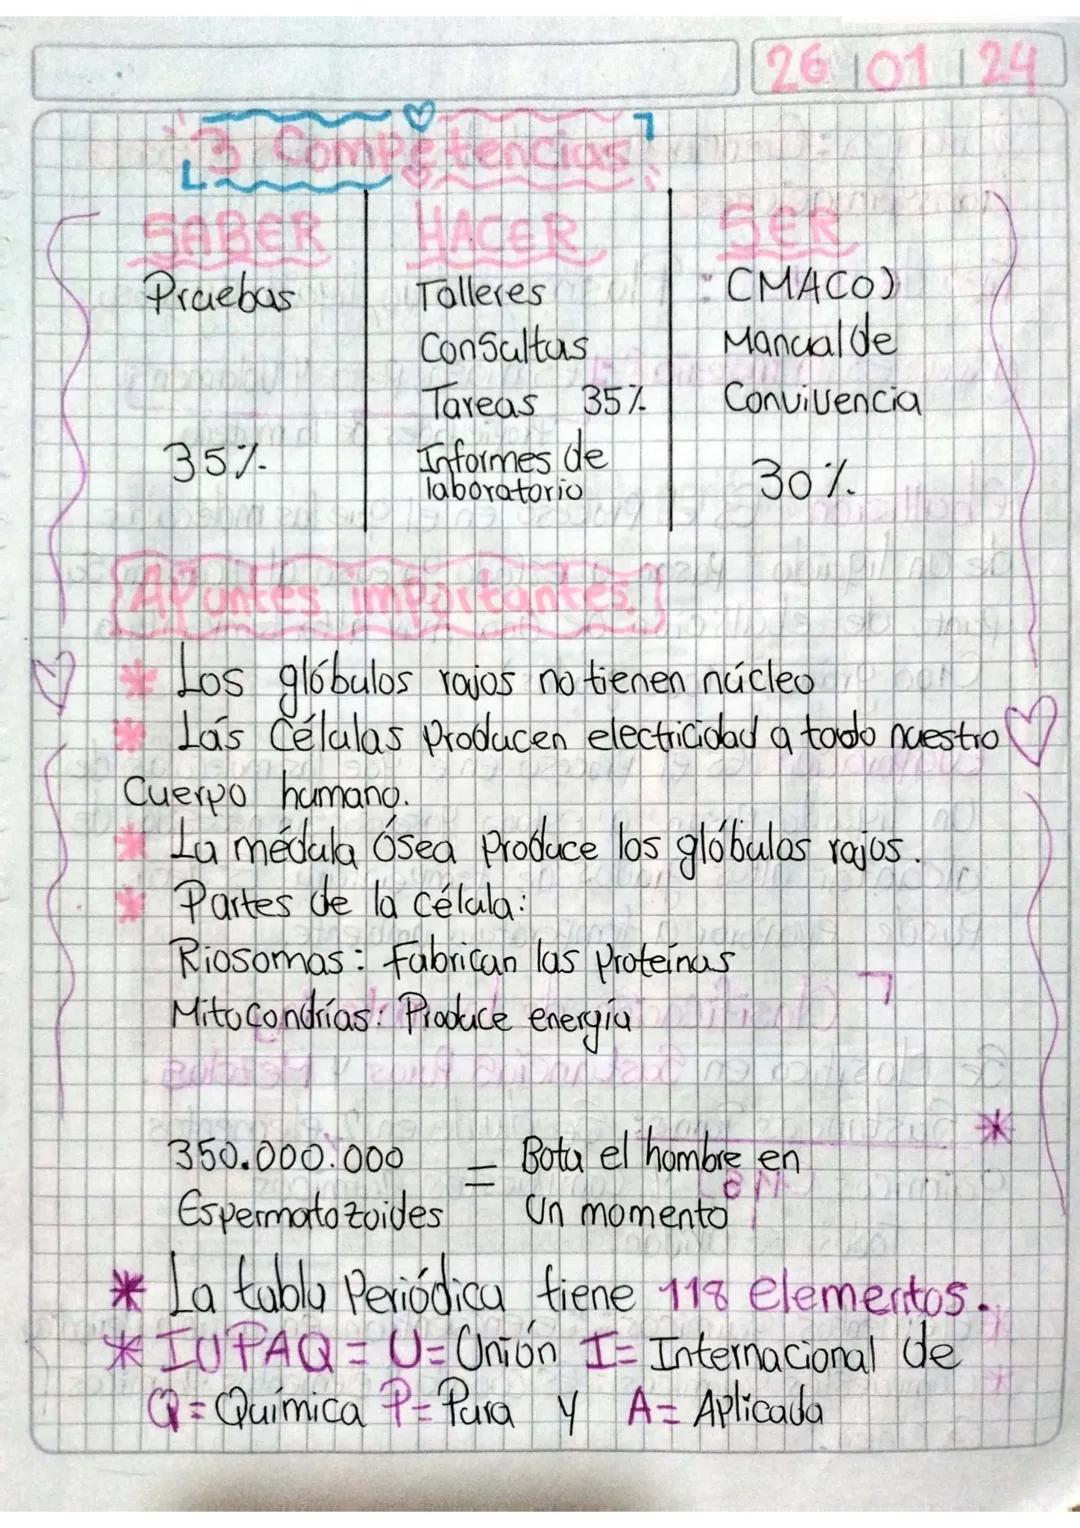 26 | 01 | 24
3 Competencias
SABER
Pruebas
35%
HACER
Talleres
Consultas
Tareas 35%
Informes de
laboratorio
SER
(MACO)
Manual de
Convivencia
30%
Apuntes importantes
* Los glóbulos rojos no tienen núcleo
* Lás Células Producen electricidad a todo nuestro
Cuerpo humano.
* La médula Ósea produce los glóbulos rojos.
* Partes de la célula:
Riosomas: Fabrican las proteínas
Mitocondrías: Produce energía
350.000.000 = Bota el hombre en
Espermatozoides un momento
* La tabla Periódica tiene 118 elementos.
* IUPAQ = U= Unión I= Internacional de
Q= Química P= Pura y A= Aplicada